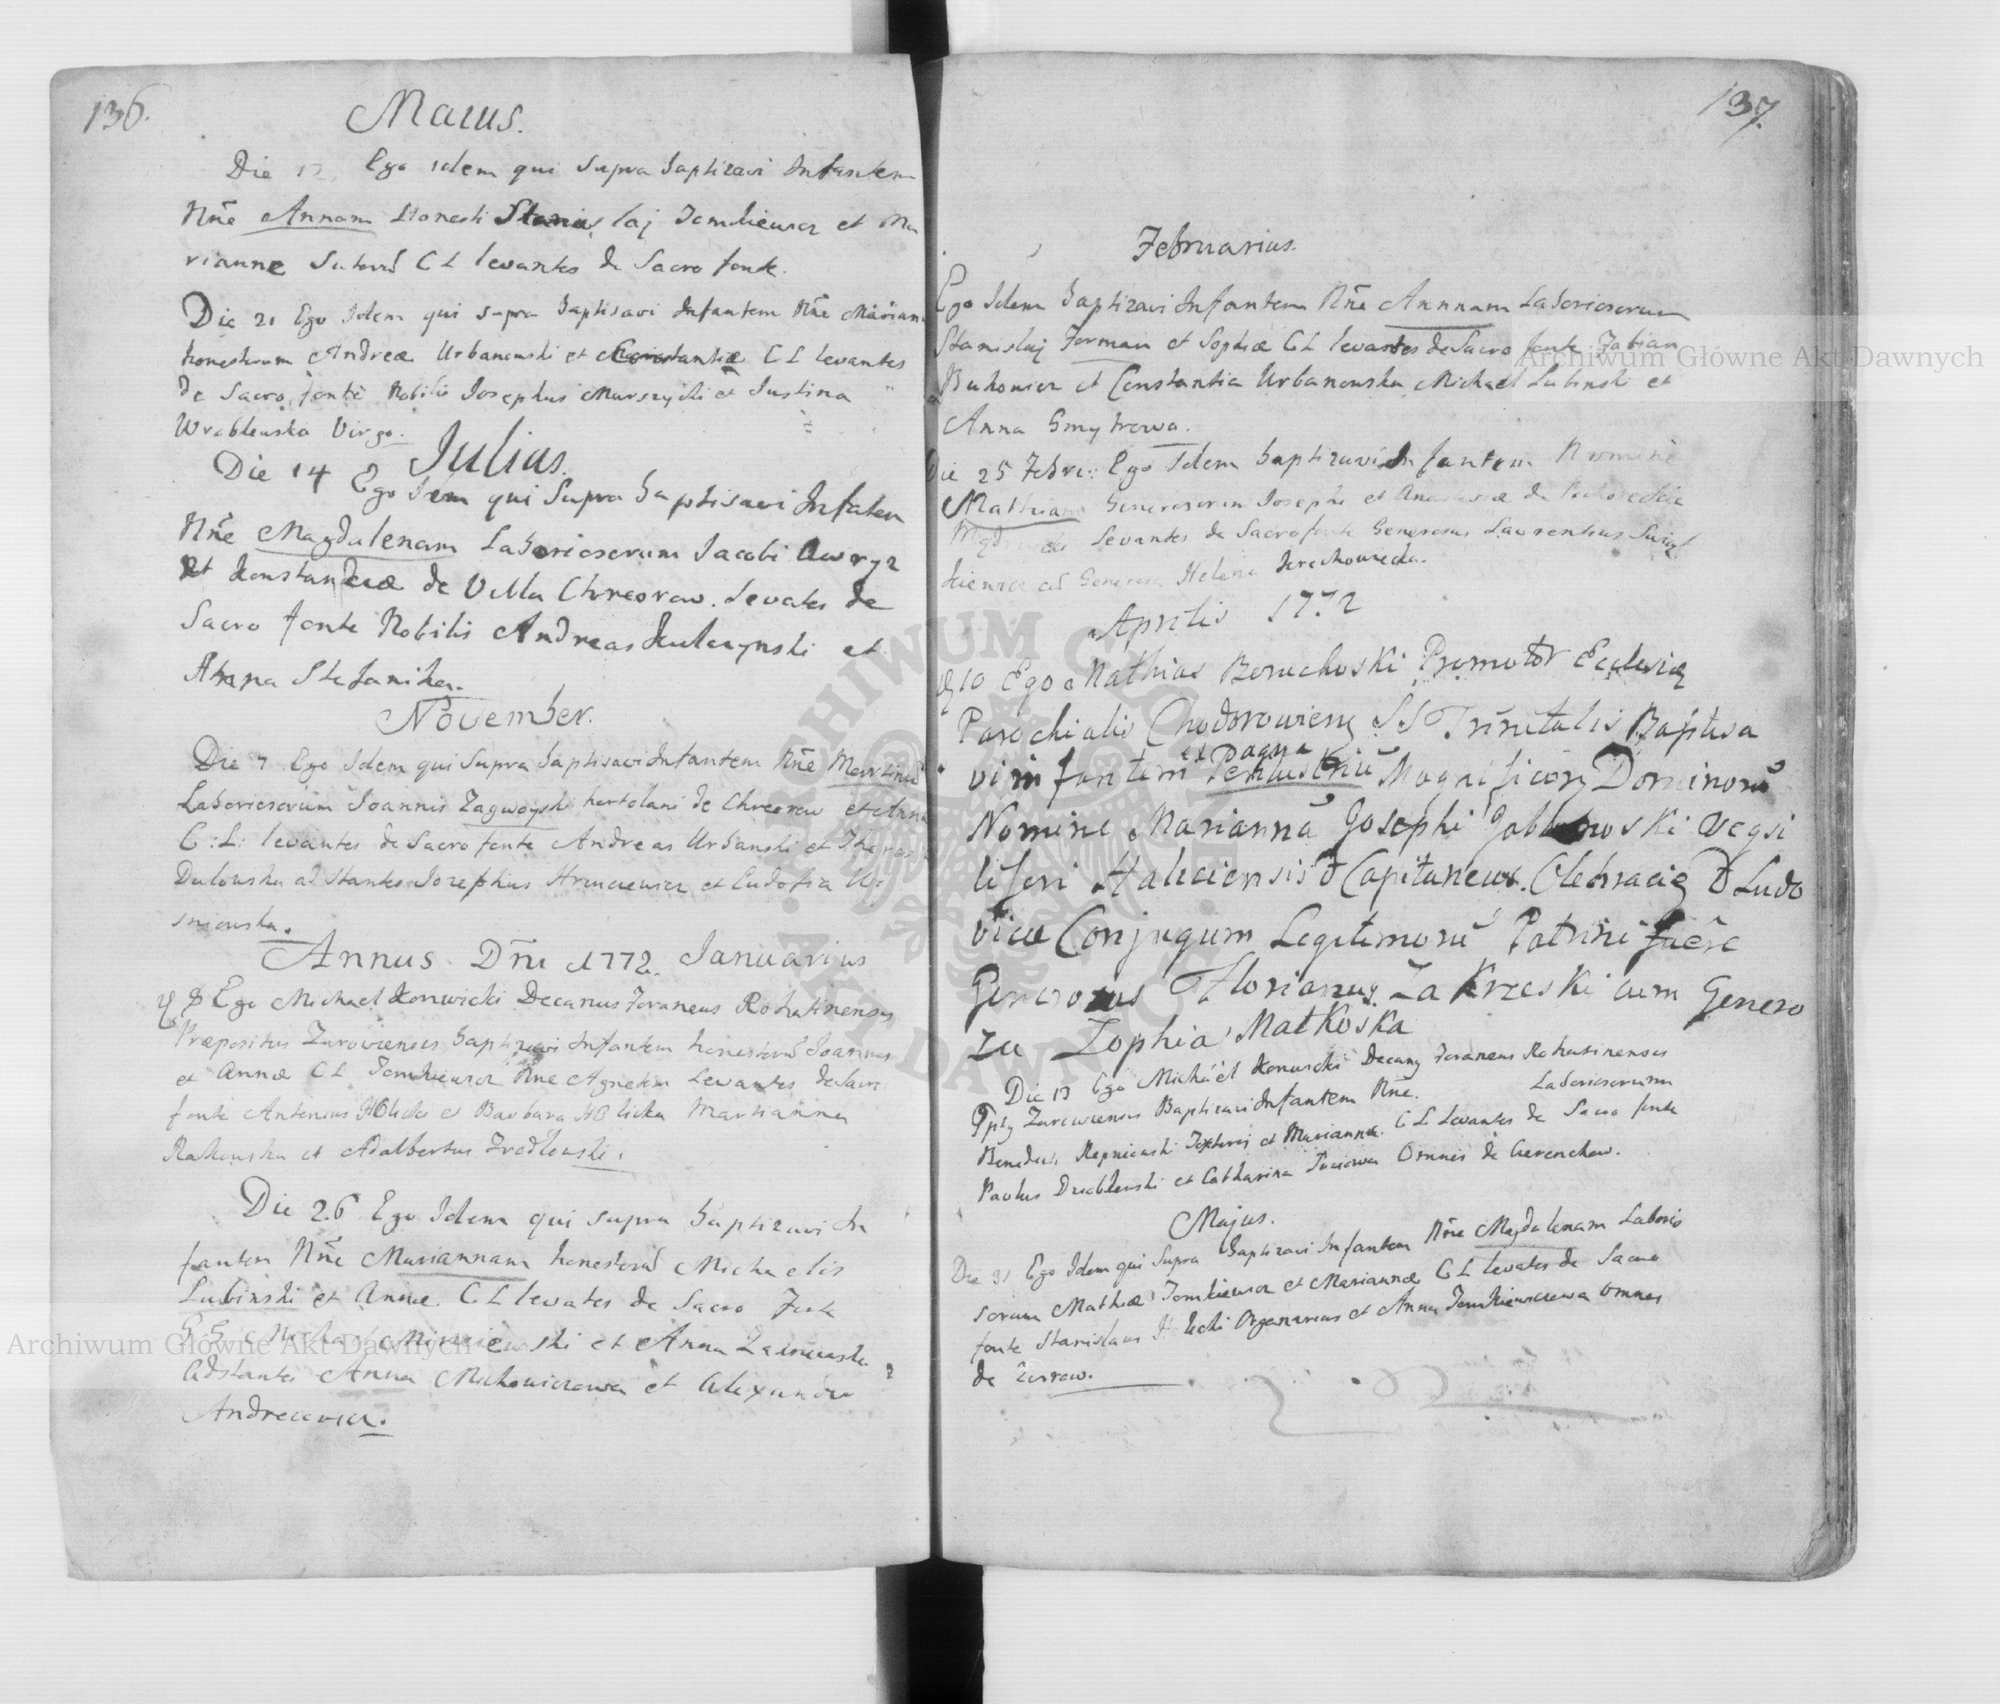 136.
Maius.
Die 12. Ego idem qui supra baptizavi Infantem
Nñe Annam Honesti Stanislaj Jemkiewicz et Ma
rianne C L levantes de Sacro fonte.
Die 21 Ego Idem qui supra baptisavi Infantem Nñe Mariann
honestorum Andreæ Urbanowski et Constantiæ C L levantes
de Sacro fonte Nobilis Josephus Murszycki et Justina
Wroblewska Virgo.
Julius.
Die 14 Ego Idem qui Supra baptisavi Infatem
Nñe Magdalenam Laboriosorum Jacobi
et Konstanciæ de Villa Chreorow. Levates de
Sacro fonte Nobilis Andreas Kulczynski et
Anna Stefanika.
November.
Die 7 Ego Idem qui Supra baptisavi Infantem Nñe
Laboriosorum Joannis Zagwoyski hortolani de Chreorow et Anna
C: L: levantes de Sacro fonte Andreas Urbanski et Theresia
Dulowska adstantes Josephus et Eudosia
sniowska.
Annus Dñi 1772. Januarius
8 Ego Michael Konwicki Decanus Foraneus Rohatinensis
Præpositus Zuroviensis baptizavi Infantem honestorũ Joannis
et Annæ C L Jemkiewicz Nñe Agnetem Levantes de Sacro
fonte Antonius Holicki et Barbara Holicka Martianna
Rakowska et Adalbertus Zrodlowski.
Die 26 Ego Idem qui supra baptizavi In
fantem Nñe Mariannam honestorũ Michaelis
Lubinski et Annæ C L levates de Sacro Fonte
G G Michael et Anna
Adstantes Anna Michowiczowa et Alexander
Andreiewicz.
137.
Februarius.
Ego Idem baptizavi Infantem Nñe Annnam Laboriosorum
Stanislaj Forman et Sophiæ C L levantes de Sacro fonte Fabian
Bukowicz et Constantia Urbanowska, Michael Lubinski et
Anna Gmytrowa.
Die 25 Febr: Ego Idem baptizavi Infantem Nomine
Mathiam Generosorum Josephi et Anastasiæ de
Levantes de Sacro fonte Generosus Laurentius
kiewicz et Generosa Helena Terechowiecka.
Aprilis 1772
10 Ego Mathias Boruchoski Promotor Ecclesiæ
Parochialis Chodoroviens SS Trinitatis Baptisa
vi infantem ex aqua Magnificorum Dominorũ
Nomine Mariannã Josephi Jablonowski Vegsi
liferi Haliciensis Capitaneus Ludo
vicæ Conjugum Legitimorũ Patrini fuere
Generosus Florianus Zakrzeski cum Genero
za Zophia Matkoska
Die 13 Ego Michael Konwicki Decanus Foraneus Rohatinensis
Zuroviensis Baptizavi Infantem Nñe. Laboriosorum
Benedicti Repnicuski Textoris et Mariannæ C L Levantes de Sacro fonte
Paulus Drublewski et Catharina Omnes de Czerenchow.
Majus.
Die 31 Ego Idem qui supra baptizavi Infantem Nñe Magdalenam Laborio
sorum Mathiæ Jemkiewicz et Mariannæ C L levates de Sacro
fonte Stanislaus Holicki Organarius et Anna Jemkiewiczowa omnes
de Zurow.
Archiwum Główne Akt Dawnych
Archiwum Główne Akt Dawnych
ARCHIWUM GŁÓWNE
AKT DAWNYCH